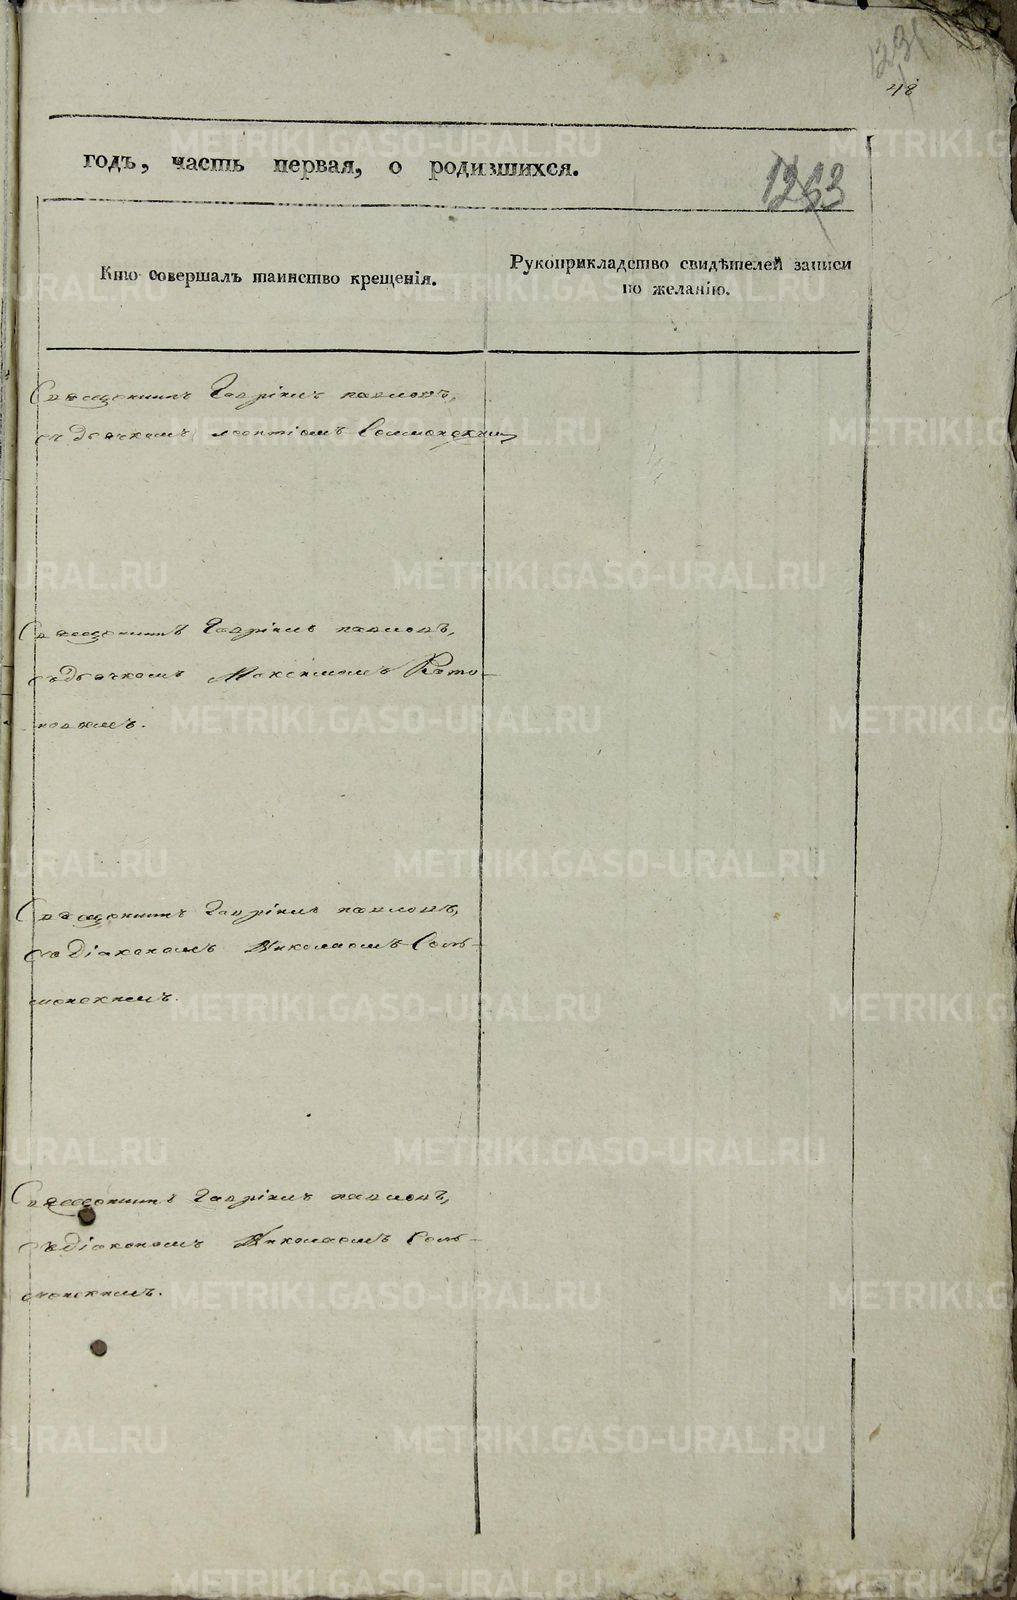 48
годъ, часть первая, о родившихся.
Кто совершалъ таинство крещенія.
Рукоприкладство свидѣтелей записи
по желанію.
Священникъ Гавріилъ павловъ,
съ дьячкомъ леонтіомъ
Священникъ Гавріилъ павловъ,
съ дьячкомъ Максимомъ
Священникъ Гавріилъ павловъ,
съ діакономъ Николаомъ
Священникъ Гавріилъ павловъ,
съ діакономъ Николаомъ
METRIKI.GASO-URAL.RU